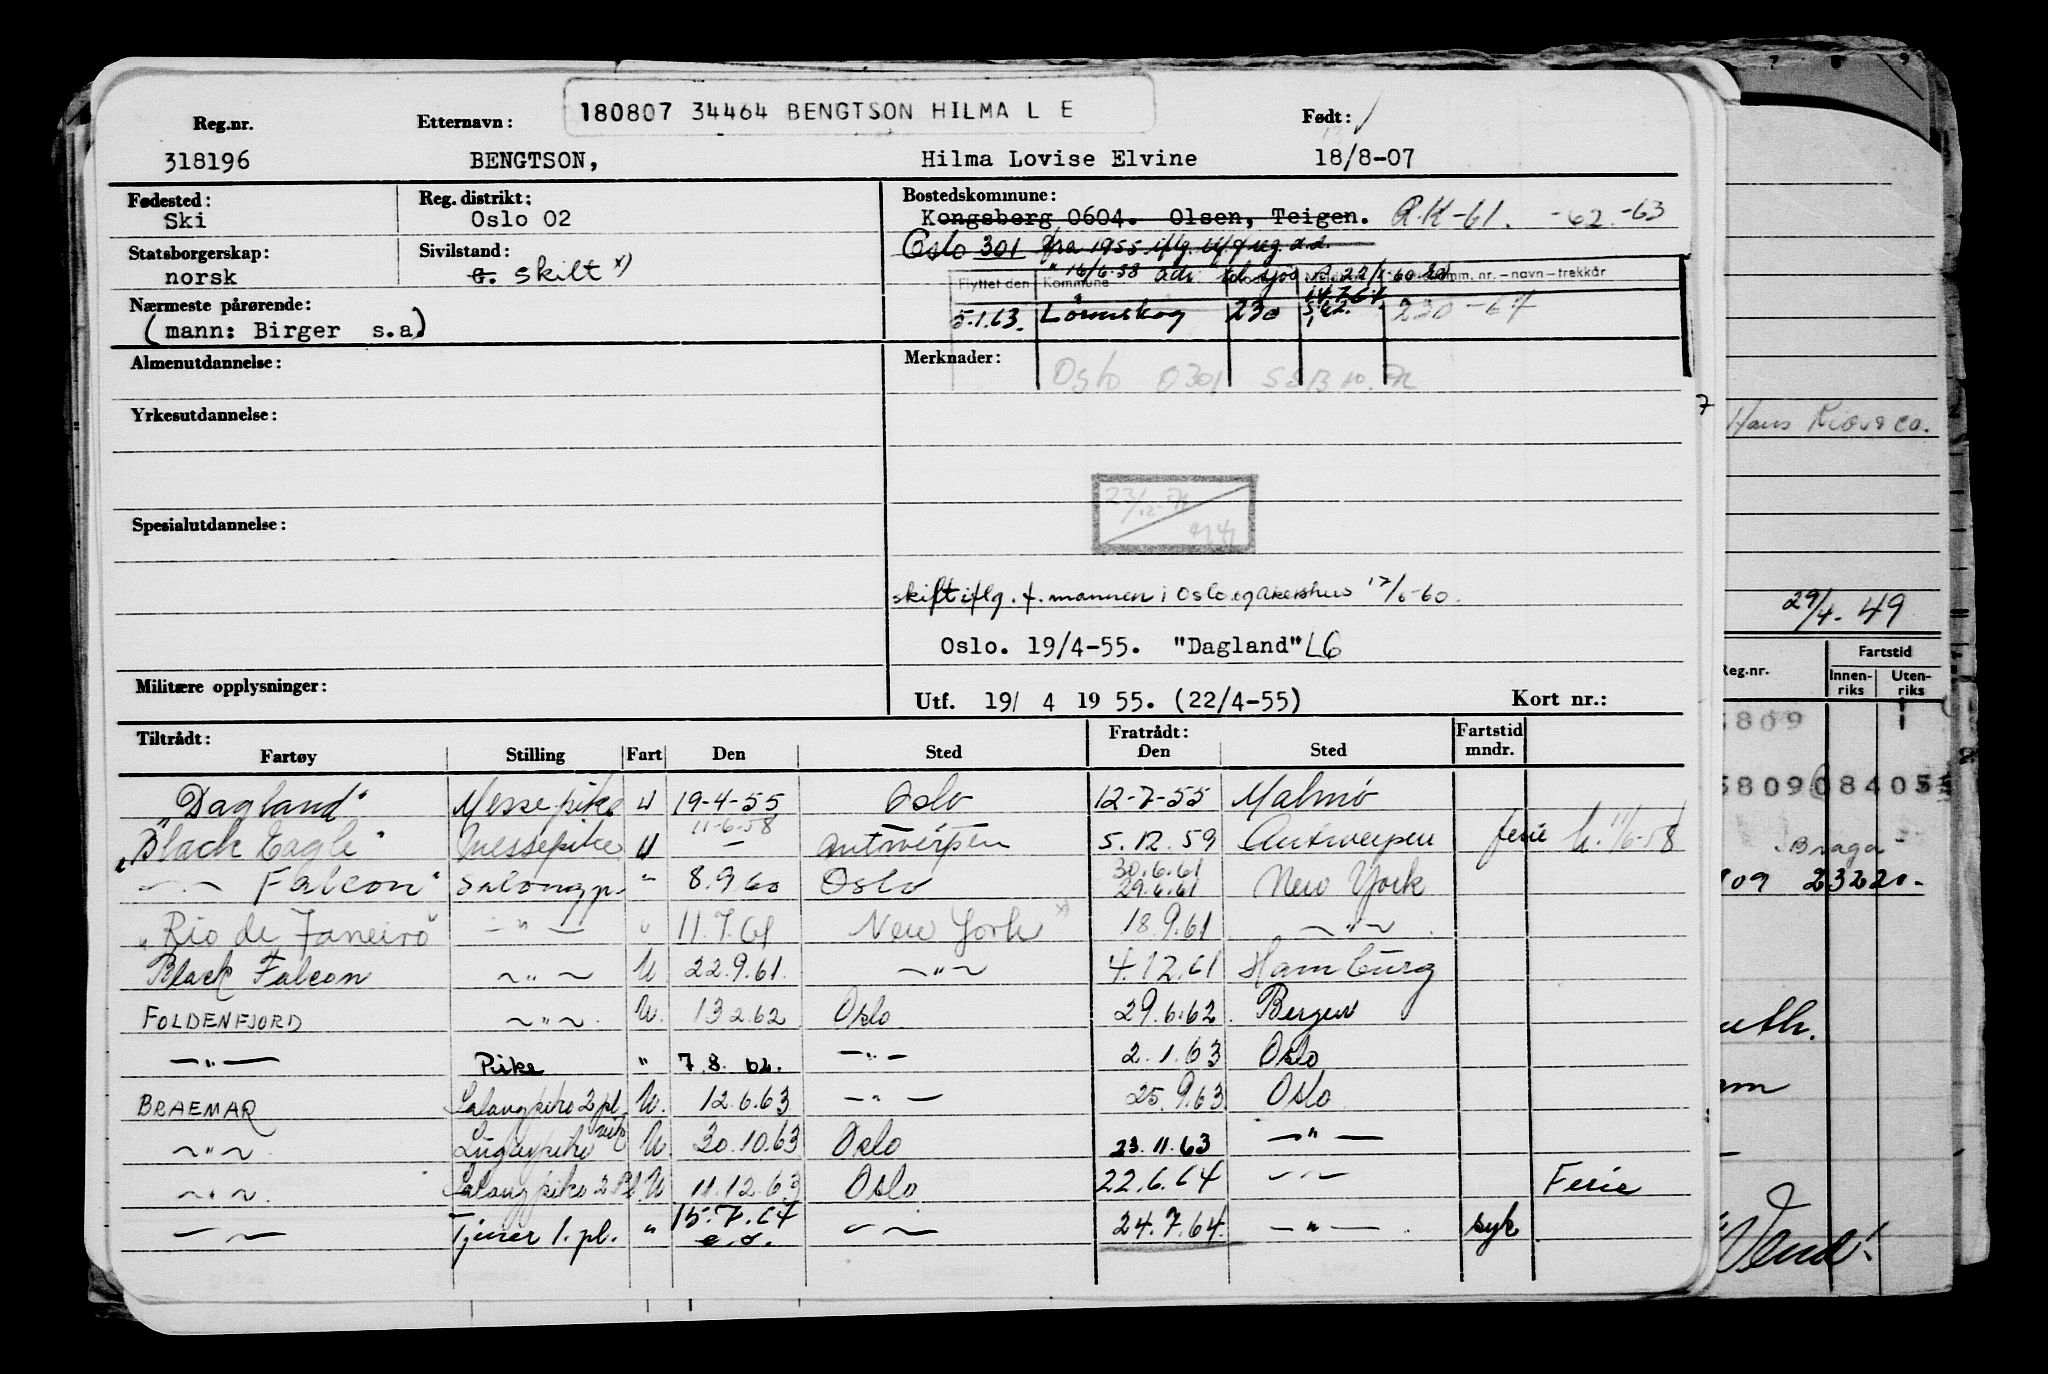 180807 34464 BENGTSON HILMA L E
Reg.nr. Etternavn: Født:
318196 BENGTSON, Hilma Lovise Elvine 18/8-07
Fødested: Reg. distrikt: Bostedskommune:
Ski Oslo 02 Kongsberg 0604. Olsen, Teigen. R.K-61. -62. -63
Oslo 301 fra 1955 iflg.
Statsborgerskap: Sivilstand:
norsk G. skilt x)
Flyttet den Kommune komm. nr. – navn – trekkår
Nærmeste pårørende:
5.1.63. Lörenskog 230 230 - 64
(mann: Birger s.a)
Almenutdannelse: Merknader:
Oslo 0301
Yrkesutdannelse:
7
Hans
Spesialutdannelse:
skilt iflg. f. mannen i Oslo og akershus 17/6-60.
29/4-49
Oslo. 19/4-55. "Dagland" LG
Militære opplysninger: Utf. 19/ 4 19 55. (22/4-55) Kort nr.:
Reg.nr. Fartstid
Innen-riks Uten-riks
Tiltrådt: Fratrådt: Fartstid
Fartøy Stilling Fart Den Sted Den Sted mndr.
"Dagland" Messepike U 19-4-55 Oslo 12-7-55 Malmö
11-6-58
"Black Eagle" Messepike U — Antwerpen 5.12.59 Antwerpen ferie 11/6-58
30.6.61
— " — Falcon" Salongp. " 8.9.60 Oslo 29.6.61 New York
"Rio de Janeiro" — " — " 11.7.61 New York x) 18.9.61 — " —
Black Falcon — " — U 22.9.61. — " — 4.12.61 Hamburg
FOLDENFJORD — " — U. 13.2.62 Oslo 29.6.62 Bergen
— " — Pike " 7.8.62. — " — 2.1.63 Oslo
BRAEMAR Salongpike 2 pl. U. 12.6.63 — " — 25.9.63 Oslo
— " — Lugarpike vik U. 30.10.63 Oslo 23.11.63 — " —
— " — Salongpike 2 Pl. U 11.12.63 Oslo 22.6.64 — " — Ferie
— " — Tjener 1. pl. " 15.7.64 — " — 24.7.64. — " — syk
e.d.
5809
Braga
23220.